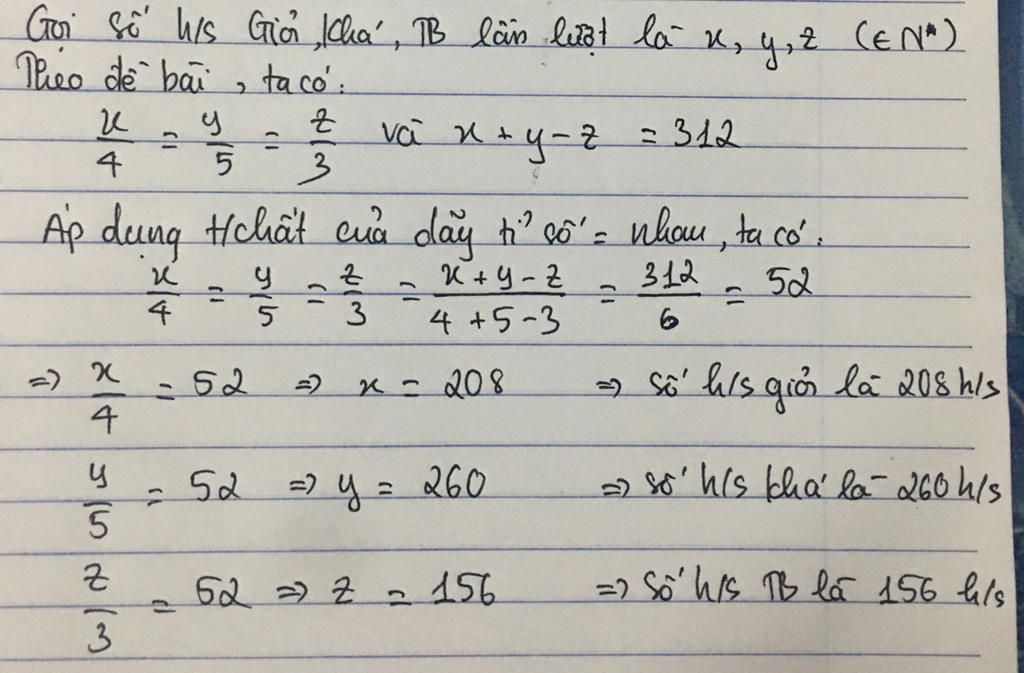 Gọi số h/s Giỏi, khá, TB lần lượt là x, y, z (∈ N*)
Theo đề bài, ta có:
x/4 = y/5 = z/3 và x + y - z = 312
Áp dụng t/chất của dãy tỉ số = nhau, ta có:
x/4 = y/5 = z/3 = (x + y - z)/(4 + 5 - 3) = 312/6 = 52
=> x/4 = 52 => x = 208 => số h/s giỏi là 208 h/s
y/5 = 52 => y = 260 => số h/s khá là 260 h/s
z/3 = 52 => z = 156 => số h/s TB là 156 h/s